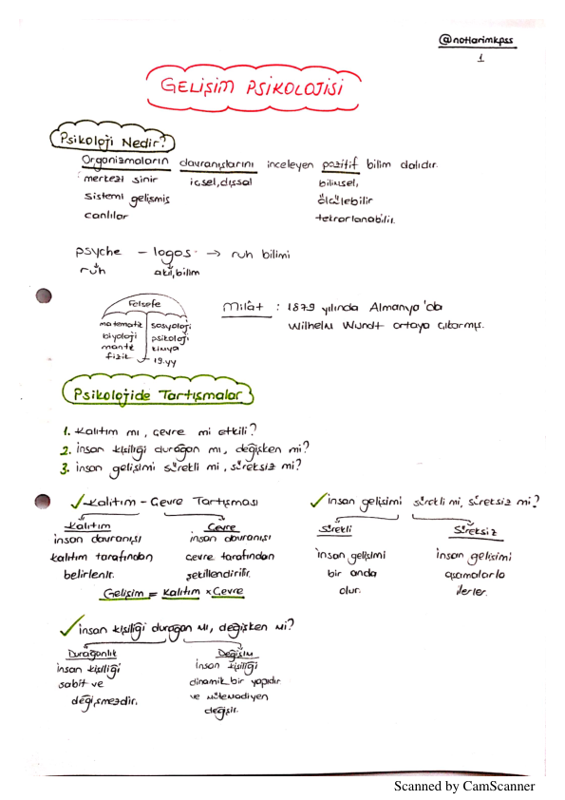 @notlarimkpss
1
GELİŞİM PSİKOLOJİSİ
Psikoloji Nedir?
Organizmaların davranışlarını inceleyen pozitif bilim dalıdır.
merkezi sinir
sistemi gelişmiş
canlılar
içsel, dışsal
bilimsel,
ölçülebilir
tekrarlanabilir.
psyche - logos → ruh bilimi
ruh akıl, bilim
Felsefe
matematik
biyoloji
mantık
fizik
sosyoloji
psikoloji
kimya
19.yy
Milat : 1879 yılında Almanya'da
Wilhelm Wundt ortaya çıkarmış.
Psikolojide Tartışmalar
1. Kalıtım mı, çevre mi etkili?
2. İnsan kişiliği durağan mı, değişken mi?
3. İnsan gelişimi sürekli mi, süreksiz mi?
✓Kalıtım - Çevre Tartışması
Kalıtım
insan davranışı
kalıtım tarafından
belirlenir.
Çevre
insan davranışı
çevre tarafından
şekillendirilir.
Gelişim = Kalıtım x Çevre
✓İnsan gelişimi sürekli mi, süreksiz mi?
Sürekli
insan gelişimi
bir anda
olur.
Süreksiz
insan gelişimi
aşamalarla
ilerler.
✓İnsan kişiliği durağan mı, değişken mi?
Durağanlık
insan kişiliği
sabit ve
değişmezdir.
Değişim
insan kişiliği
dinamik bir yapıdır
ve mütemadiyen
değişir.
Scanned by CamScanner